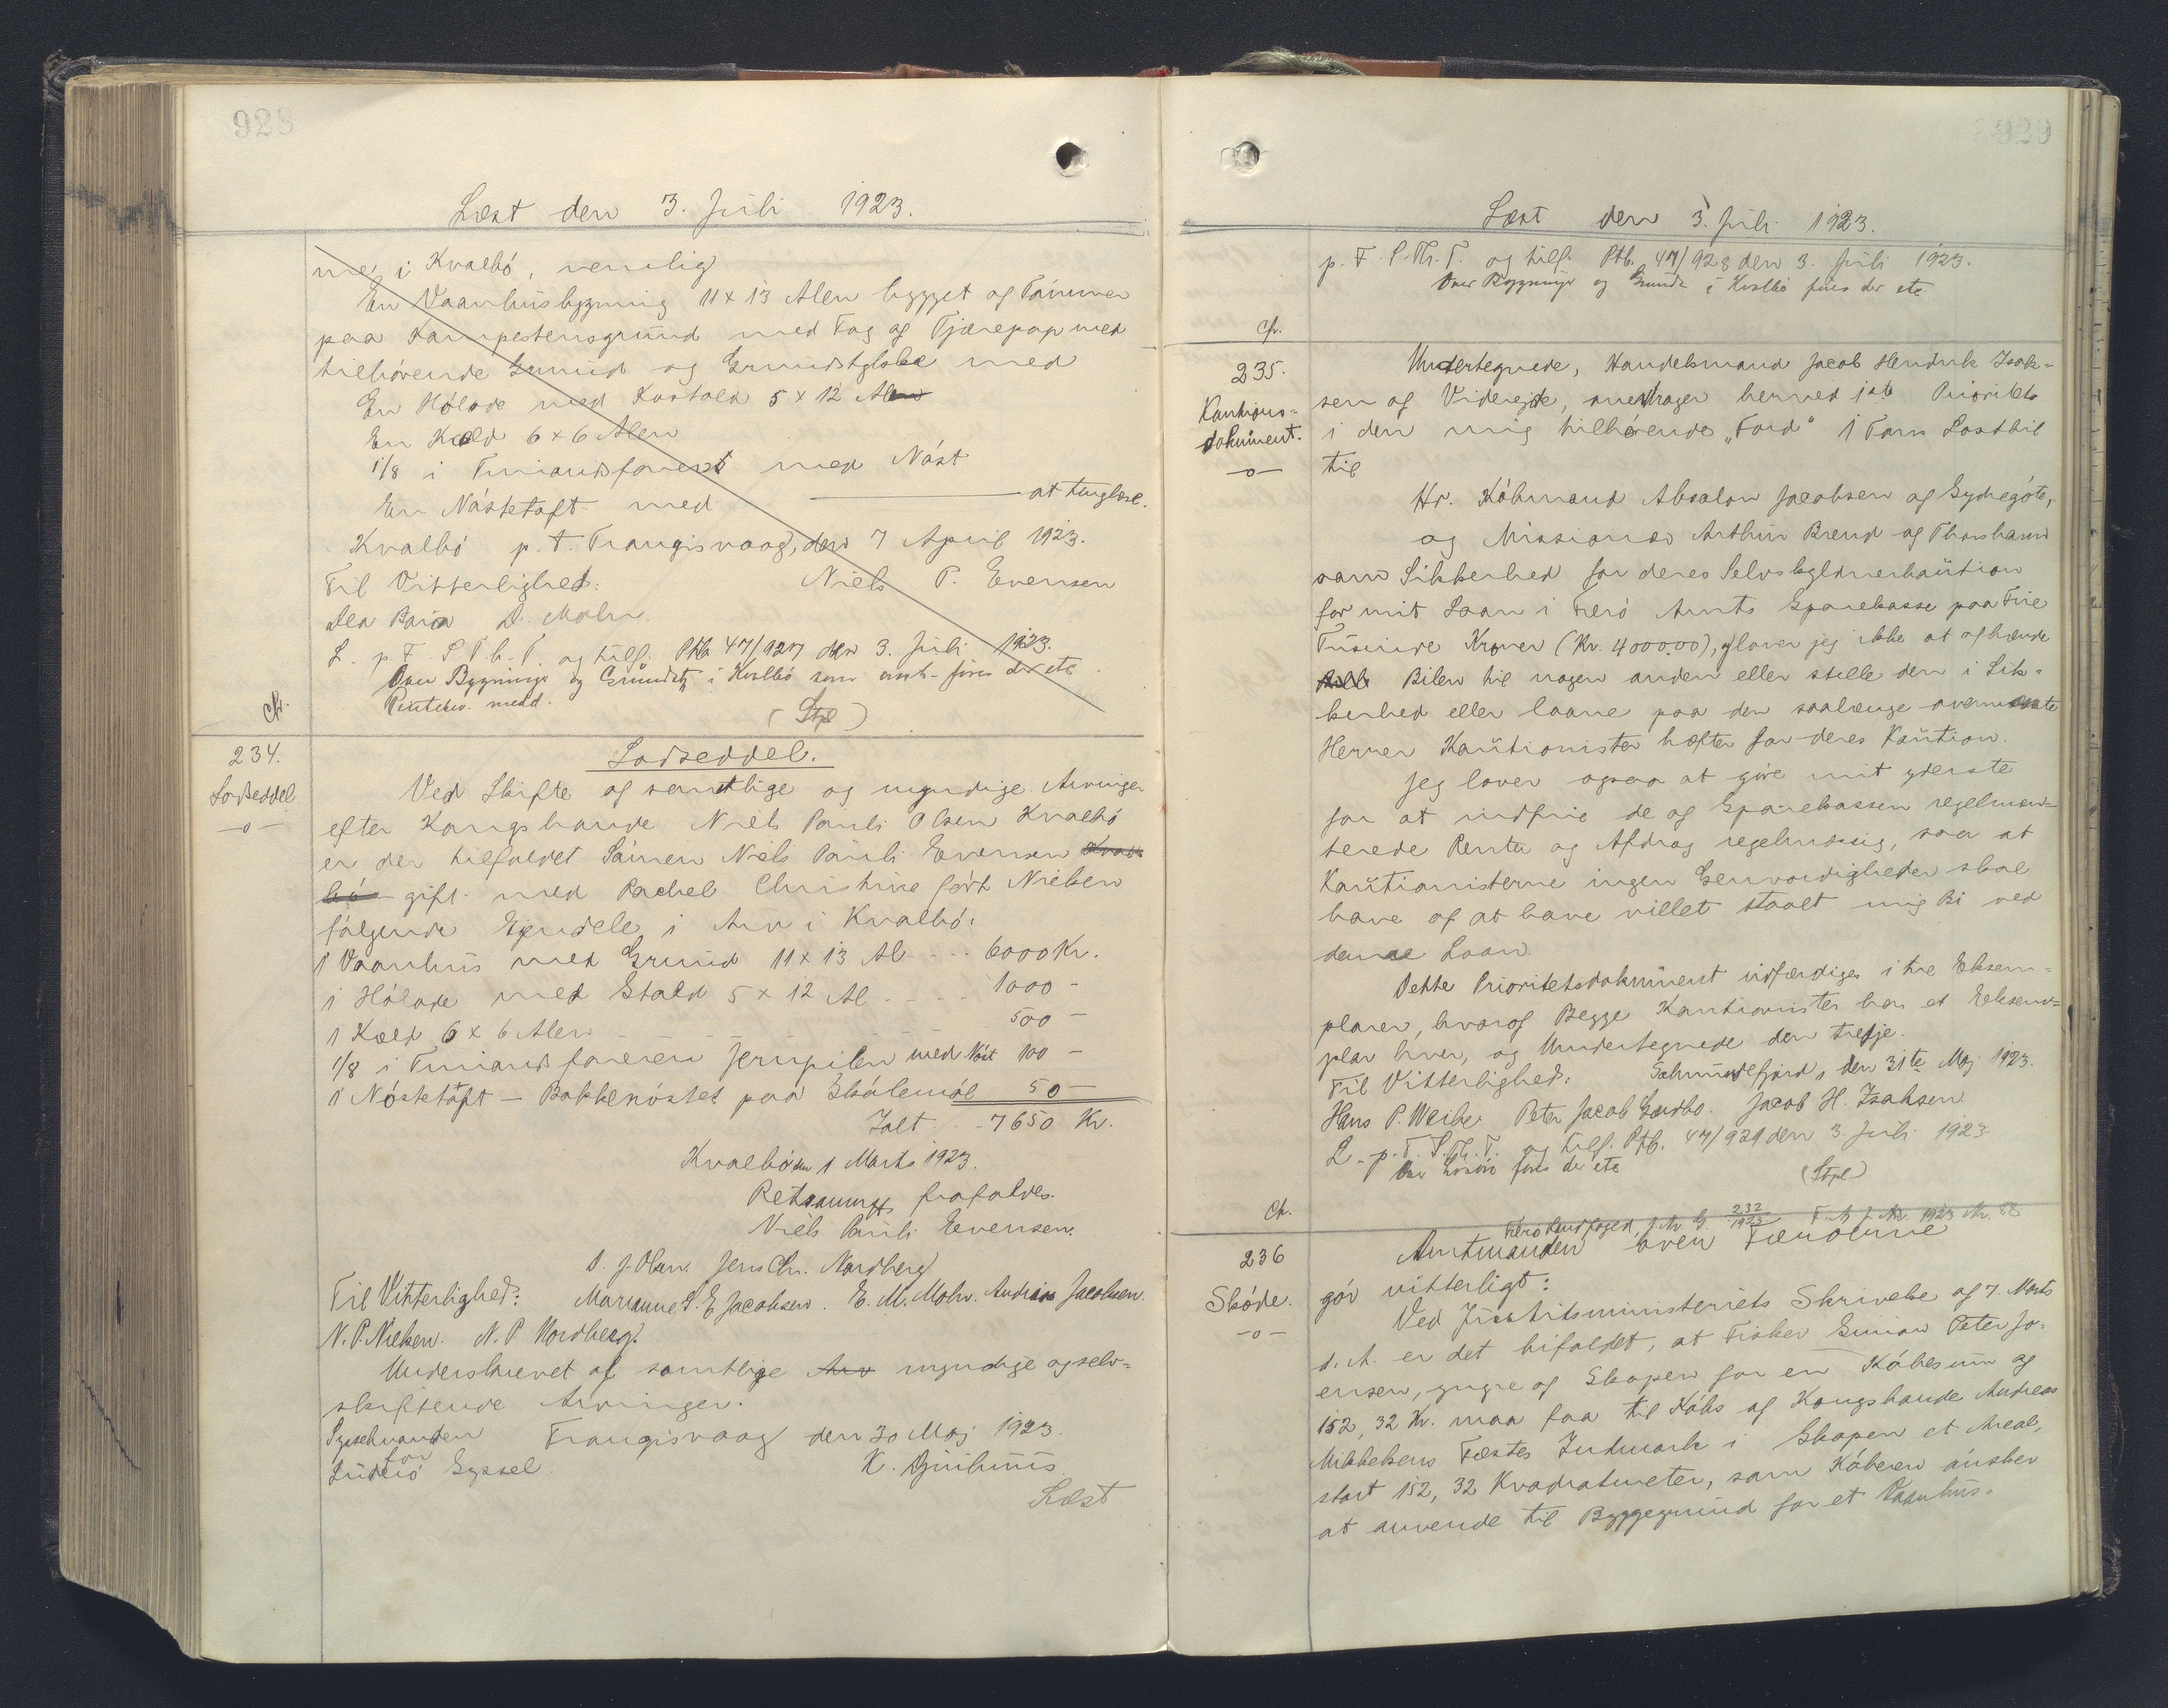 928
Læst den 3. Juli 1923.
me i Kvalbø, nemlig
En Vaanhusbygning 11 x 13 Alen bygget af Tømmer
paa Kampestensgrund med Tag af Tjærepap med
tilhørende Grund og Grundstykke med
En Hølade med Kostald 5 x 12 Alen
En Kæld 6 x 6 Alen
1/8 i Timandsfareri med Nøst
En Nøstetoft med at tinglæse.
Kvalbø p. t. Trangisvaag, den 7 April 1923.
Til Vitterlighed: Niels P. Evensen
D. Mohr.
L. p. F. S. Th. T. og tilf. Ptb. 47/927 den 3. Juli 1923.
Over Bygninger og Grundst. i Kvalbø som anf. fires der etc
Panteheo. medd.
(Stpl)
Cfr.
234.
Lodseddel
-o-
Lodseddel.
Ved Skifte af samtlige og myndige Arvinger
efter Kongsbonde Niels Pauli Olsen Kvalbø
er der tilfaldet Sønnen Niels Pauli Evensen Kval-
bø gift med Rachel Christine født Nielsen
følgende Ejendele i Arv i Kvalbø:
1 Vaanhus med Grund 11 x 13 Al. - - - 6000 Kr.
1 Hølade med Stald 5 x 12 Al - - - 1000 -
1 Kæld 6 x 6 Alen - - - 500 -
1/8 i Timandsfareren Jernpilen med Nøst 100 -
1 Nøstetoft - Bakkenøstet paa Skálemøl 50 -
Ialt - - 7650 Kr.
Kvalbø den 1 Marts 1923.
frafaldes.
Niels Pauli Evensen.
D. J. Olsen. Jens Chr. Nordberg
Til Vitterlighed: Marianne S. E Jacobsen. E. M. Mohr. Andrias Jacobsen.
N. P. Nielsen. N. P. Nordberg.
Underskrevet af samtlige Arv myndige og selv-
skiftende Arvinger.
Sysselmanden Trangisvaag den 30 Maj 1923.
for
Suderø Syssel. K. Djurhuus
Læst
929
Læst den 3. Juli 1923.
p. F. S. Th. T. og tilf. Ptb. 47/928 den 3. Juli 1923.
Over Bygninger og Grunde i Kvalbø fires der etc
Cfr.
235.
Kautions-
dokument.
-o-
Undertegnede, Handelsmand Jacob Hendrik Isak-
sen af Viderejde, overdrager herved 1ste Prioritets
i den mig tilhørende "Ford" 1 Tons Lastbil
til
Hr. Købmand Absalon Jacobsen af Sydregøte,
og Missionær Arthur Brend af Thorshavn
som Sikkerhed for deres Selvskyldnerkaution
for mit Laan i Færø Amts Sparekasse paa Fire
Tusinde Kroner (Kr. 4000.00), glover jeg ikke at afhænde
Bilen til nogen anden eller stille den i Sik-
kerhed eller laane paa den saalænge ovennævnte
Herrer Kautionister hæfter for deres Kaution.
Jeg lover ogsaa at gøre mit yderste
for at indfrie de af Sparekassen reglemen-
terede Renter og Afdrag regelmæssig, saa at
Kautionisterne ingen Genvordigheder skal
have af at have villet staalt mig Bi ved
denne Laan.
Dette Prioritetsdokument udfærdiges i tre Eksem-
plarer, hvoraf Begge Kautionister har et Eksem-
plar hver, og Undertegnede den tredje.
Til Vitterlighed: den 31te Maj 1923.
Hans P. Weihe. Peter Jacob Sandbo. Jacob H. Isaksen
L. p. F. S. Th. T. og tilf. Ptb. 47/929 den 3. Juli 1923
fires der etc
(Stpl)
Cfr.
Færø Landfoged, J. Nr. G. 232/1923 F. A. J. Nr. 1923 Nr. 88
236
Skøde.
-o-
Amtmanden over Færøerne
gør vitterligt:
Ved Justitsministeriets Skrivelse af 7. Marts
d. A. er det bifaldet, at Fisker Simon Peter Jo-
ensen, yngre af Skopen for en Købesum af
152,32 Kr. maa faa til Købs af Kongsbonde Andreas
Mikkelsens Fæstes Indmark i Skopen et Areal,
stort 152,32 Kvadratmeter, som Køberen ønsker
at anvende til Byggegrund for et Vaanhus.